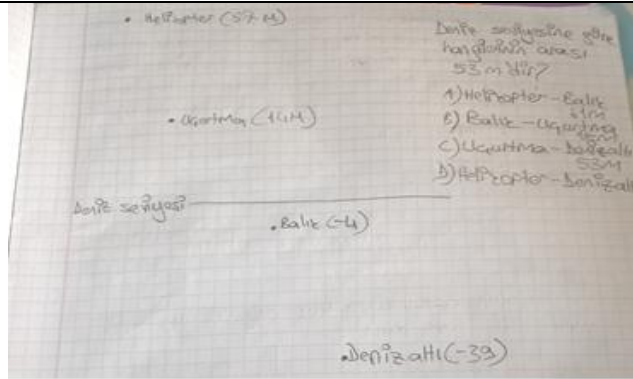 • Helikopter (57 M)
• Uçurtma (14M)
Deniz seviyesi
• Balık (-4)
• Denizaltı (-39)
Deniz seviyesine göre
hangisinin arası
53 m dir?
A) Helikopter - Balık
61m
B) Balık - Uçurtma
C) Uçurtma - Denizaltı
53m
D) Helikopter - Denizaltı